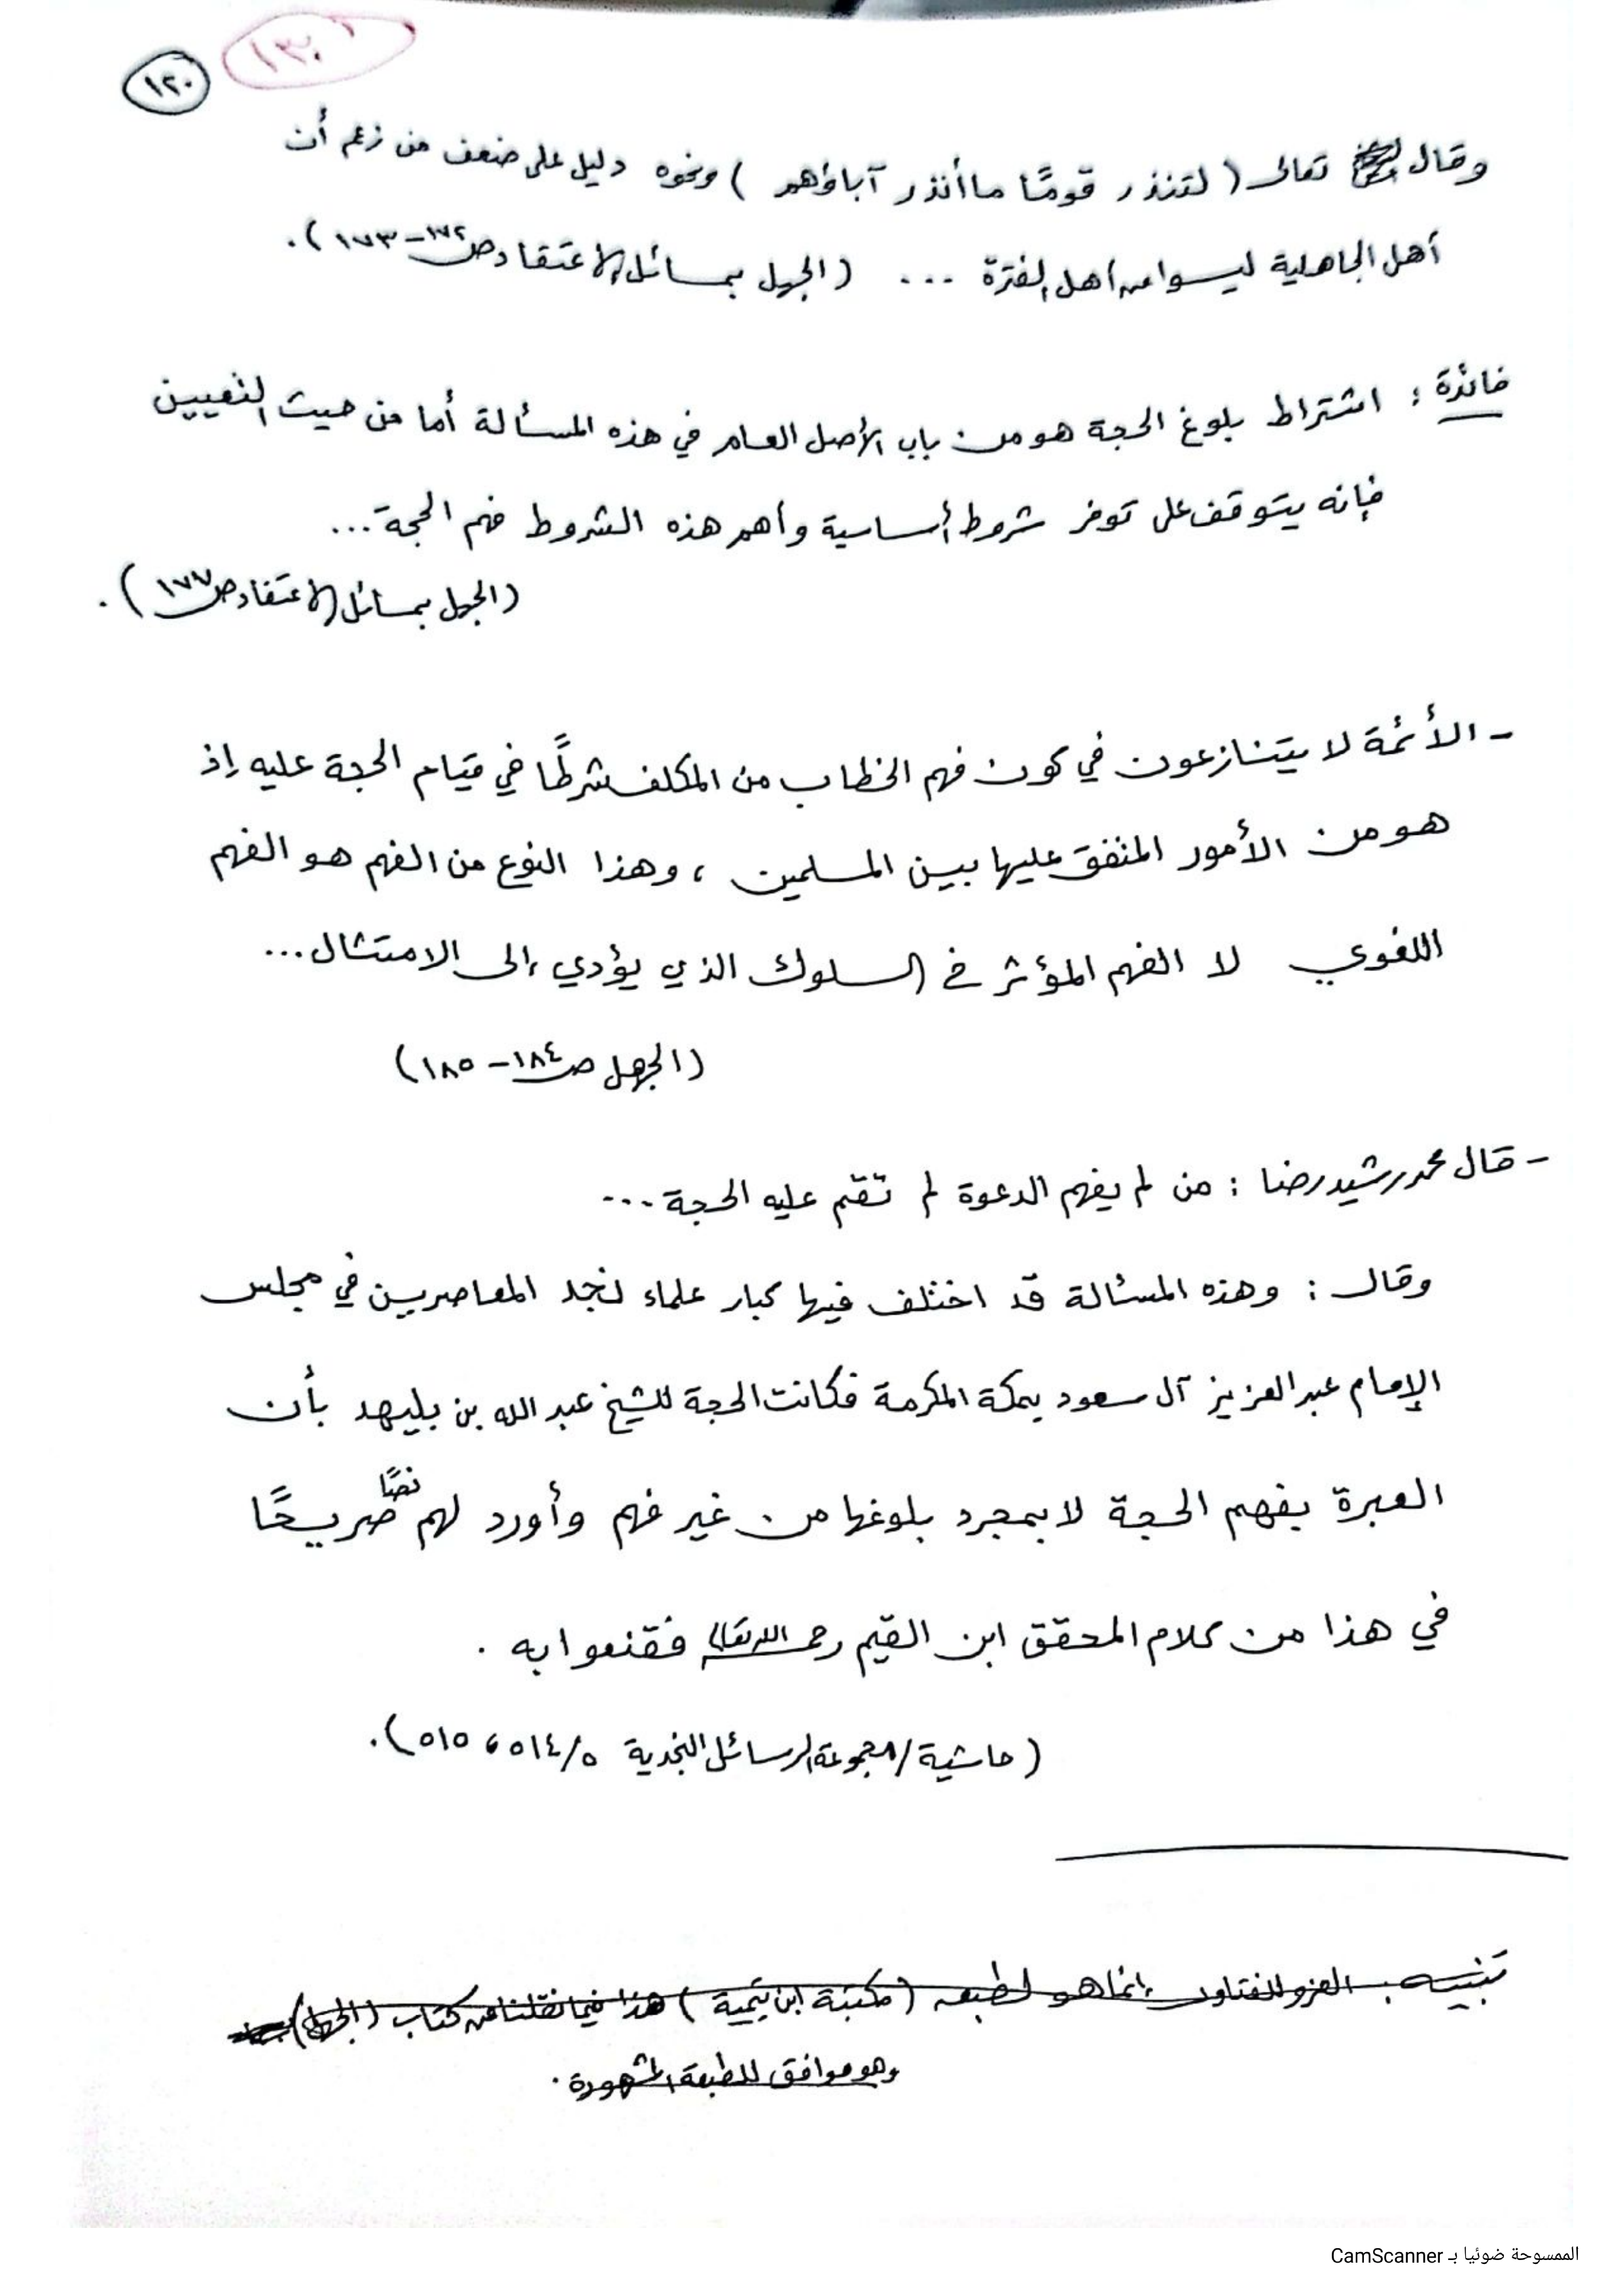 ١٣٠
١٢٠
وقال تعالى ( لتنذر قومًا ما أنذر آباؤهم ) ونحوه دليل على ضعف من زعم أن
أهل الجاهلية ليسوا من أهل الفترة ... ( الجهل بمسائل الاعتقاد ص ١٧٢ - ١٧٣ ) .
فائدة : اشتراط بلوغ الحجة هو من باب الأصل العام في هذه المسألة أما من حيث التعيين
فإنه يتوقف على توفر شروط أساسية وأهم هذه الشروط فهم الحجة ...
( الجهل بمسائل الاعتقاد ص ١٧٧ ) .
- الأئمة لا يتنازعون في كون فهم الخطاب من المكلف شرطًا في قيام الحجة عليه إذ
هو من الأمور المتفق عليها بين المسلمين ، وهذا النوع من الفهم هو الفهم
اللغوي لا الفهم المؤثر في السلوك الذي يؤدي إلى الامتثال ...
( الجهل ص ١٨٤ - ١٨٥ )
- قال محمد رشيد رضا : من لم يفهم الدعوة لم تقم عليه الحجة ...
وقال : وهذه المسألة قد اختلف فيها كبار علماء نجد المعاصرين في مجلس
الإمام عبد العزيز آل سعود بمكة المكرمة فكانت الحجة للشيخ عبد الله بن بليهد بأن
العبرة بفهم الحجة لا بمجرد بلوغها من غير فهم وأورد لهم نصًا صريحًا
في هذا من كلام المحقق ابن القيم رحمه الله تعالى فقنعوا به .
( حاشية / مجموعة الرسائل النجدية ٥/٥١٤ ، ٥١٥ ) .
تنبيه : العزو للفتاوى إنما هو لطبعة ( مكتبة ابن تيمية ) هذا فيما نقلناه من كتاب ( الجهل )
وهو موافق للطبعة المشهورة .
الممسوحة ضوئيا بـ CamScanner